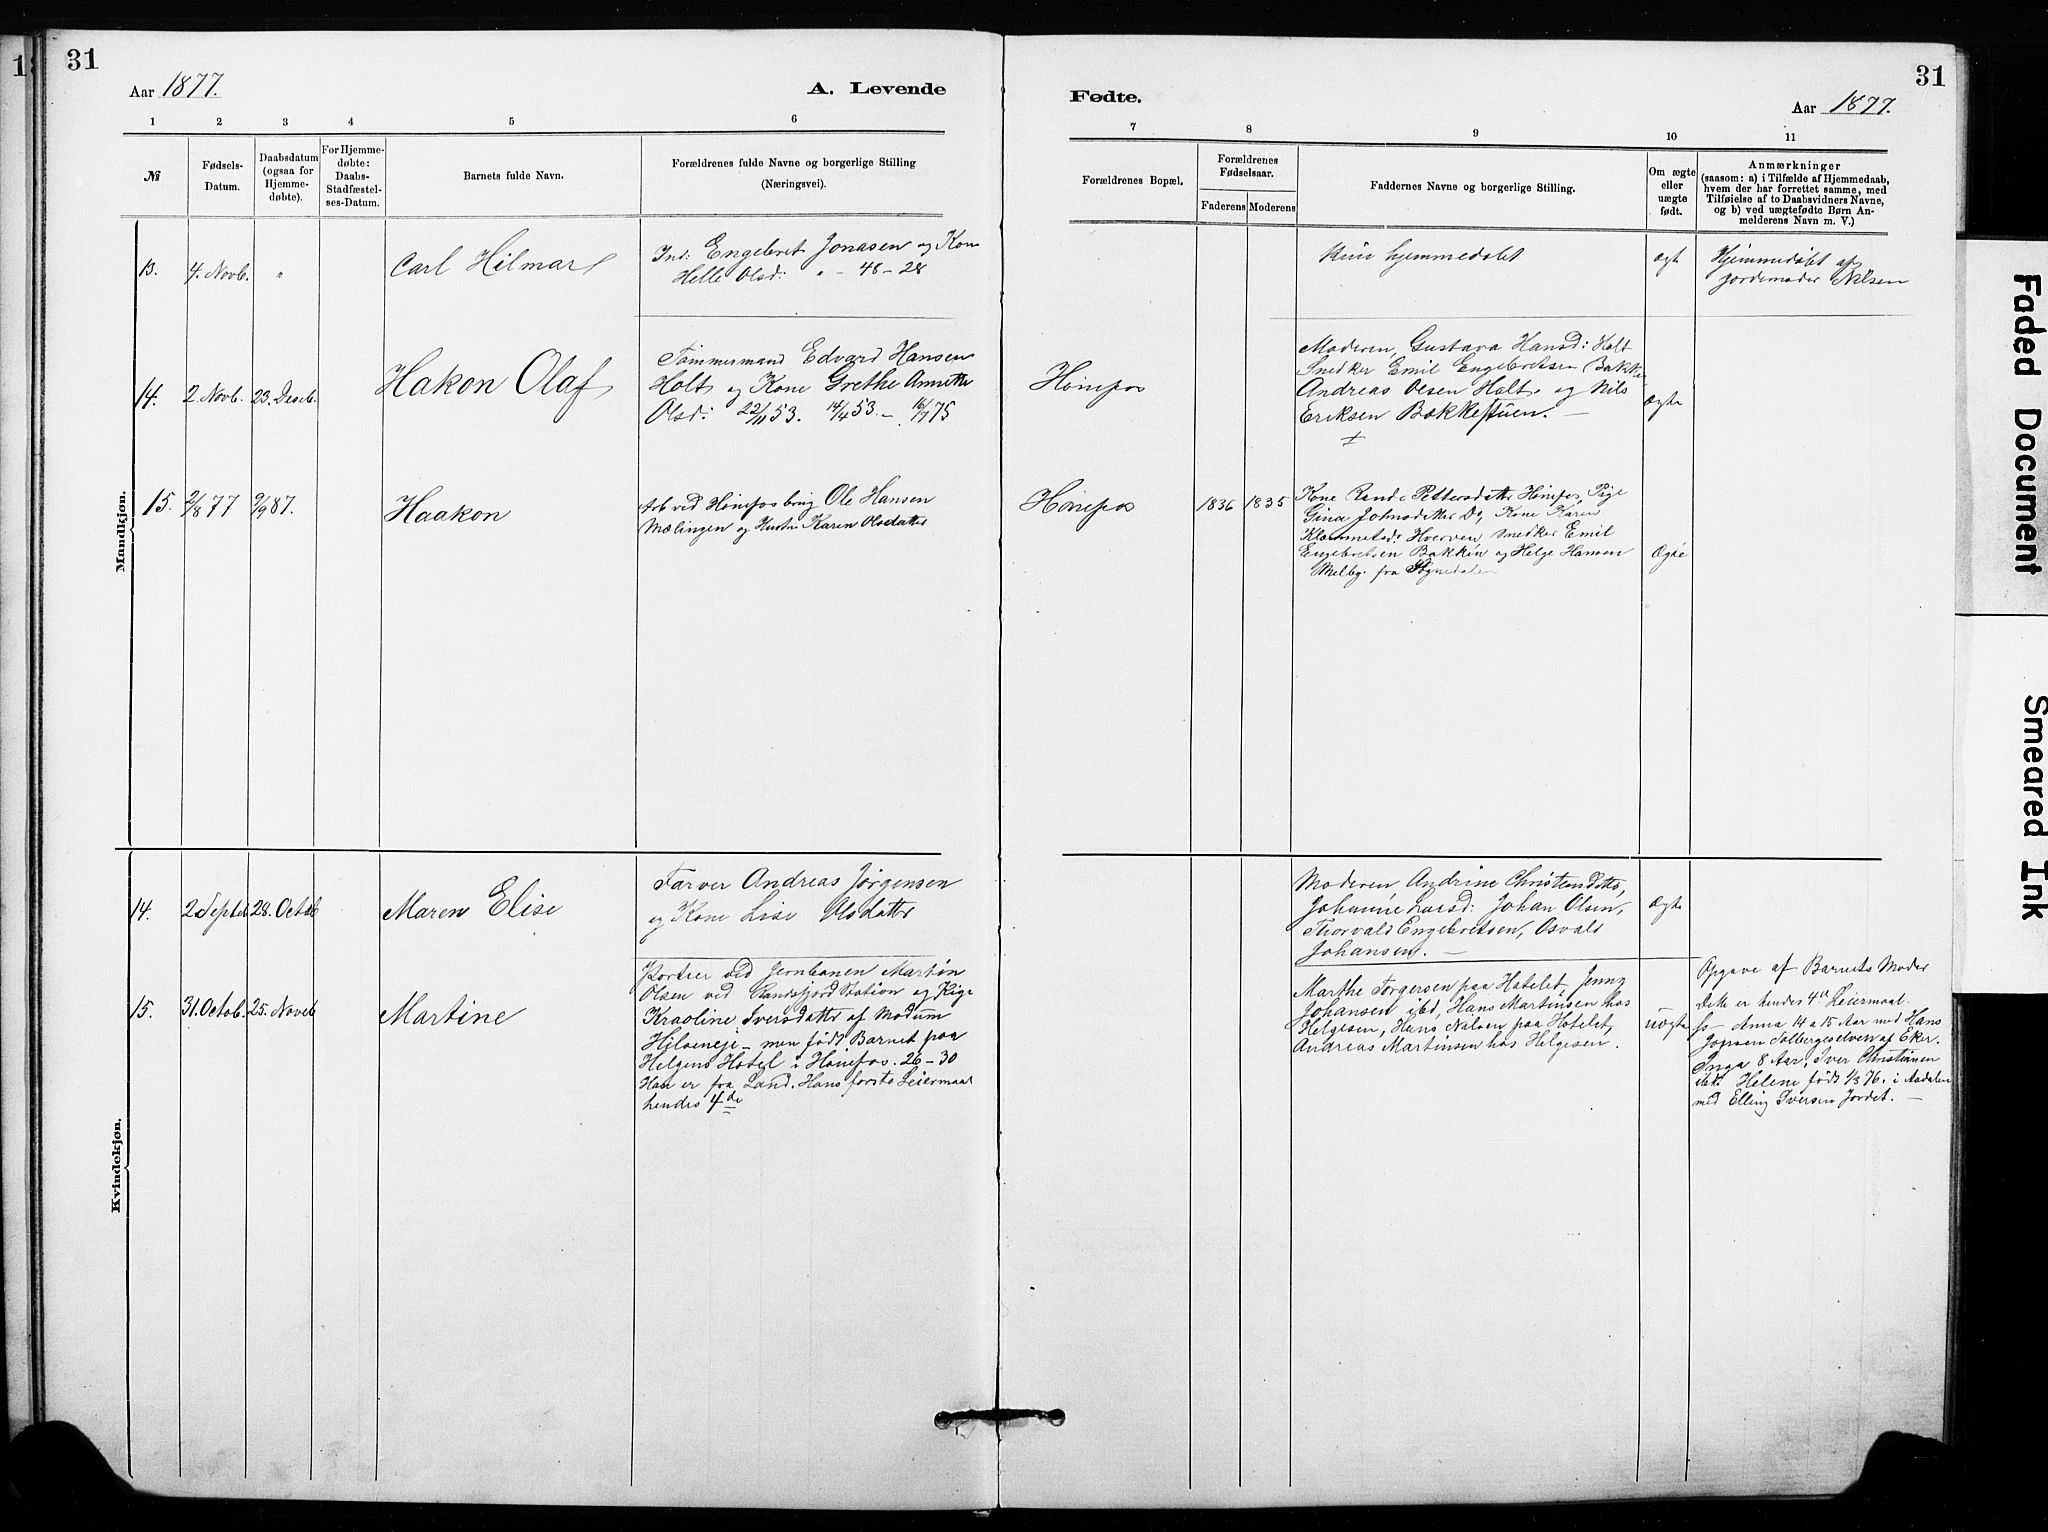 31
Aar 1877.
A. Levende
1 2 3 4 5 6
№
Fødsels-
Datum.
Daabsdatum
(ogsaa for
Hjemme-
døbte).
For Hjemme-
døbte:
Daabs-
Stadfæstel-
ses-Datum.
Barnets fulde Navn.
Forældrenes fulde Navne og borgerlige Stilling
(Næringsvei).
Mandkjøn.
13. 4. Novb. "
Carl Hilmar
Ind: Engebret Jonasen og Kone
Helle Olsd: " - 48-28
14. 2. Novb. 23. Decb.
Hakon Olaf
Tømmermand Edvard Hansen
Holt og Kone Grethe Annette
Olsd: 22/11 53. 14/4 53. - 16/7 75
15. 2/8 77 9/9 87.
Haakon
Arb ved Hønefos brug Ole Hansen
Mælingen og Hustru Karen Olsdatter
Kvindekjøn.
14. 2 Septe 28. Octob
Maren Elise
Farver Andreas Jørgensen
og Kone Lise Olsdatter
15. 31. Octob. 25. Noveb
Martine
Portier ved Jernbanen Martin
Olsen ved Randsfjord Station og Pige
Kraoline Iversdatter af Modum
- men født Barnet paa
Helgens Hotel i Hønefos. 26-30
Han er fra Land. Hans første Leiermaal
hendes 4de
31
Fødte.
Aar 1877.
7 8 9 10 11
Forældrenes Bopæl.
Forældrenes
Fødselsaar.
Faderens Moderens
Faddernes Navne og borgerlige Stilling.
Om ægte
eller
uægte
født.
Anmærkninger
(saasom: a) i Tilfælde af Hjemmedaab,
hvem der har forrettet samme, med
Tilføielse af to Daabsvidners Navne,
og b) ved uægtefødte Børn An-
melderens Navn m. V.)
Kun hjemmedøbt
ægt
Hjemmedøbt af
jordemoder Nilsen
Hønefos
Moderen, Gustava Hansd: Holt
Snedker Emil Engebretsen Bakke
Andreas Olsen Holt og Nils
Eriksen Bakkestuen. -
Ægte
Hønefos
1836 1835
Kone Randi Pettersdatter Hønefos, Pige
Gina Johnsdatter Do, Kone Karen
Klemmetsd: Hverven, Snedker Emil
Engebretsen Bakken og Helge Hansen
Melby. fra Sognedalen
Ægte
Moderen, Andrine Christensdatter,
Johanne Larsd: Johan Olsen,
Thorvald Engebretsen, Osvald
Johansen. -
Ægte
Marthe Torgersen paa Hotelet, Jenny
Johansen ibd, Hans Martinsen hos
Helgesen, Hans Nilsen paa Hotelet
Andreas Martinsen hos Helgesen.
uægte
Opgave af Barnets Moder
Dette er hendes 4de Leiermaal.
Anna 14 a 15 Aar med Hans
af Eker.
Inga 8 Aar, Iver Christiansen
ibd. Helene født 1/3 76. i Aadalen
med Elling Iversen Jordet. -
Faded Document
Smeared Ink